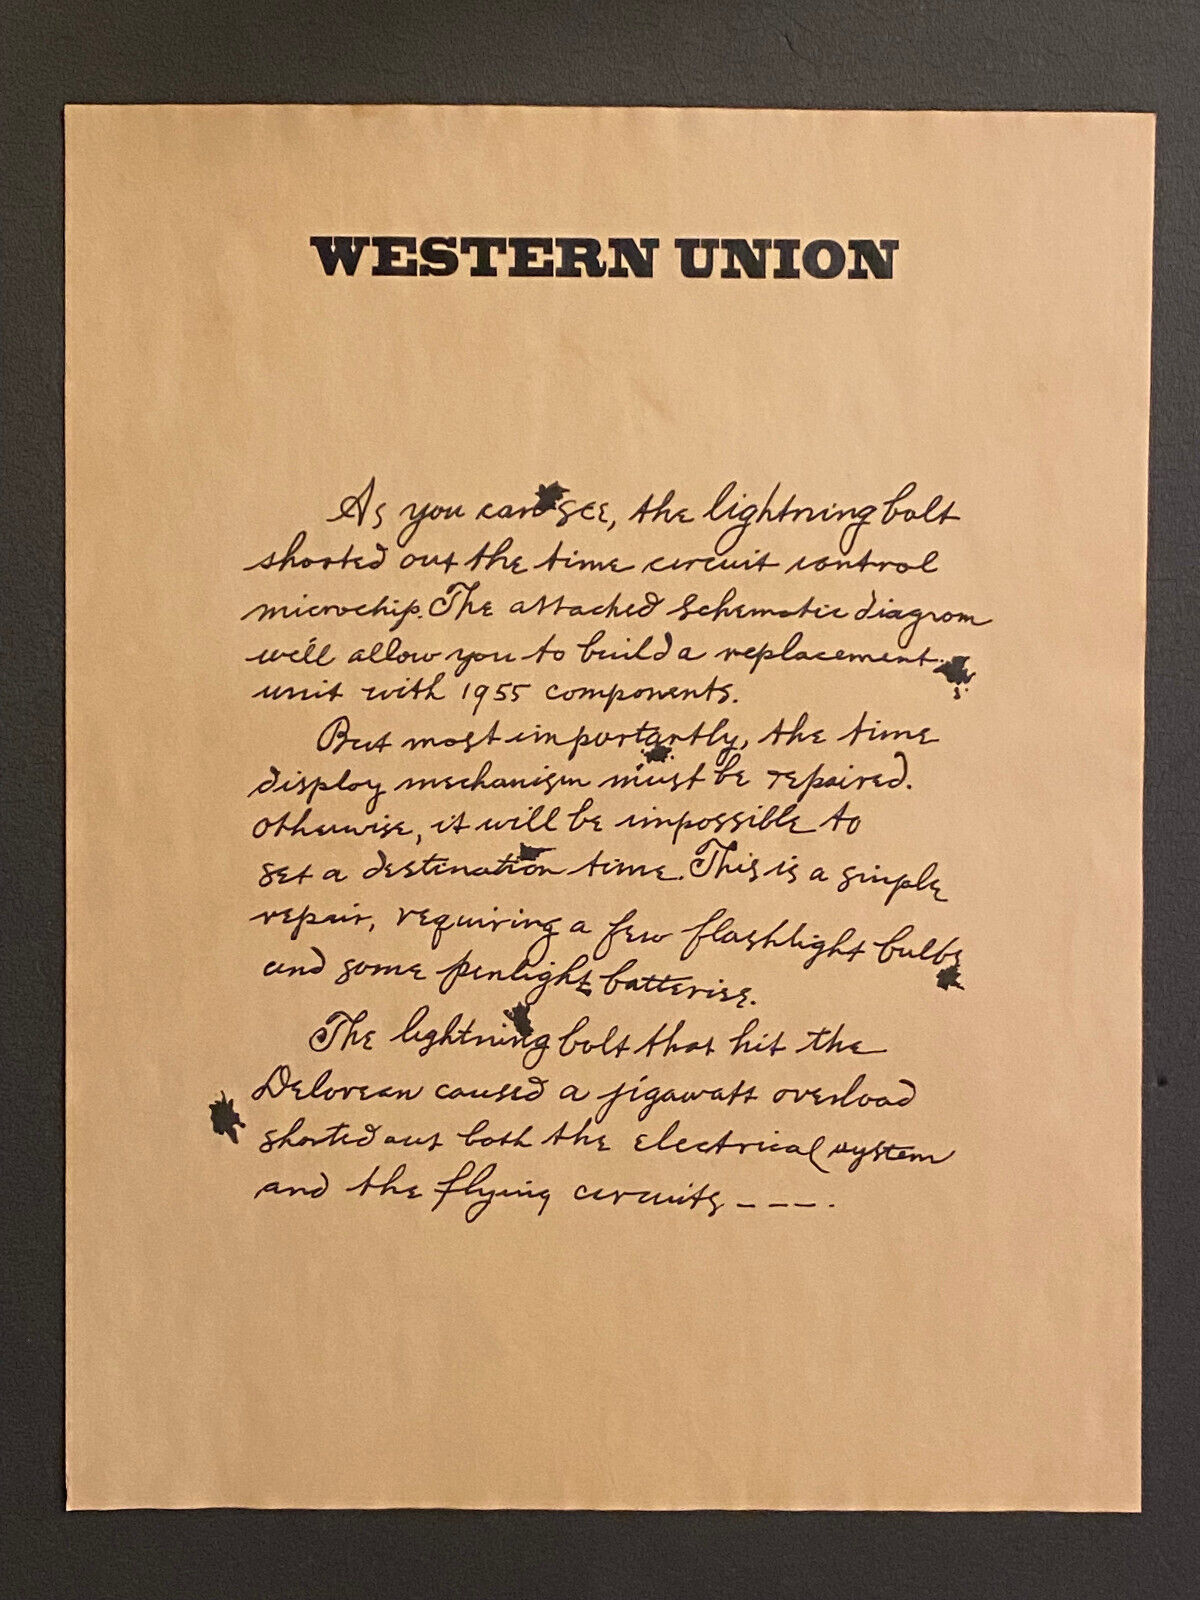 WESTERN UNION
As you can see, the lightning bolt
shorted out the time circuit control
microchip. The attached schematic diagram
will allow you to build a replacement
unit with 1955 components.
But most importantly, the time
display mechanism must be repaired.
Otherwise, it will be impossible to
set a destination time. This is a simple
repair, requiring a few flashlight bulbs
and some penlight batteries.
The lightning bolt that hit the
Delorean caused a jigawatt overload
shorted out both the electrical system
and the flying circuits - - - .